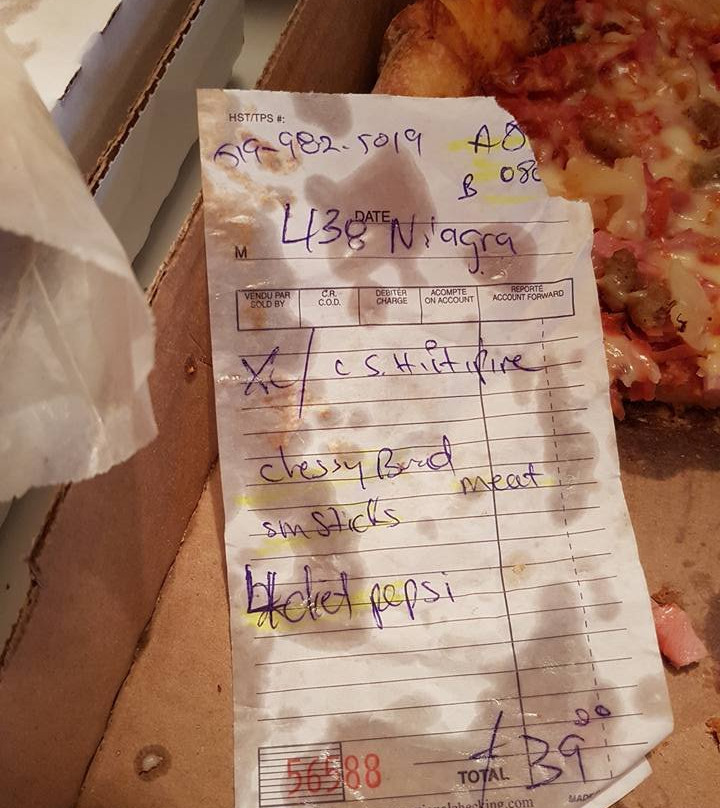 HST/TPS #:
519-982-5019 A8
B 080
DATE
438 Niagra
M
VENDU PAR SOLD BY C.R. C.O.D. DEBITER CHARGE ACOMPTE ON ACCOUNT REPORTÉ ACCOUNT FORWARD
XL / C S. H
chessy Bread
meat
sm Sticks
4 diet pepsi
56588
TOTAL 39
MADE